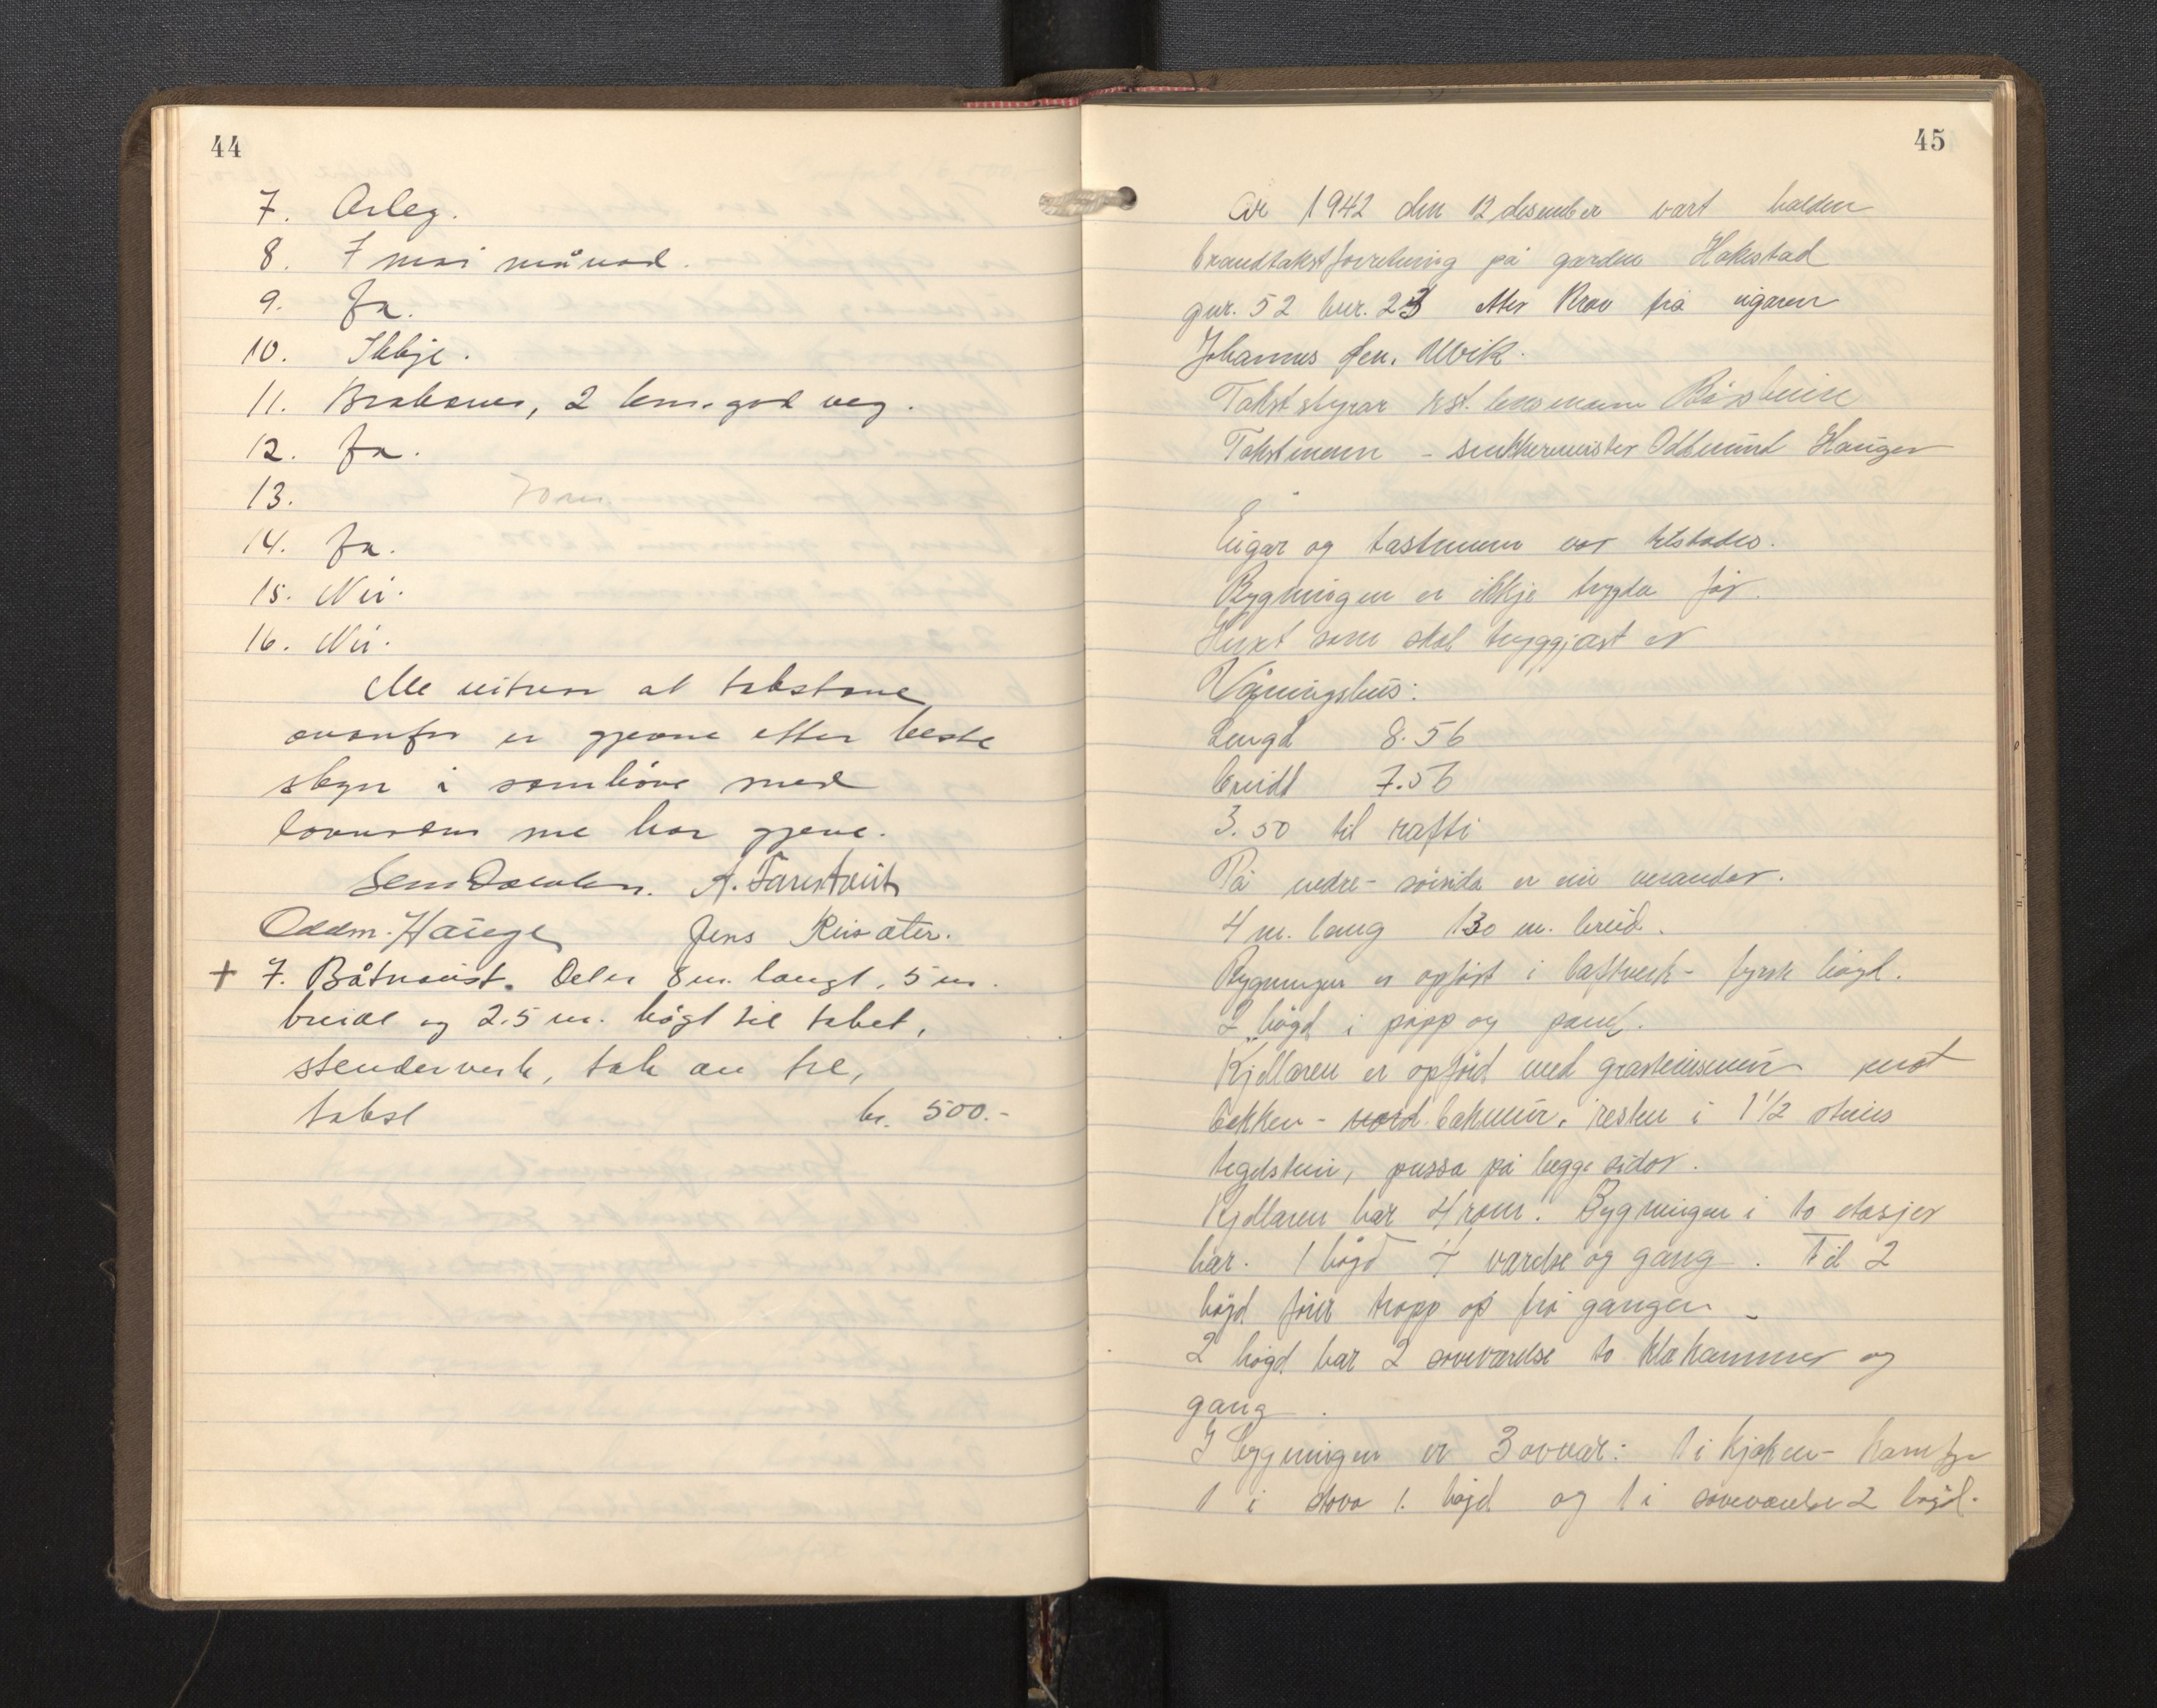 44
7. Årleg.
8. I mai månad.
9. Ja.
10. Ikkje.
11. Brakanes, 2 km. god veg.
12. Ja.
13.
14. Ja.
15. Nei.
16. Nei.
Me vitnar at takstane
ovanfor er gjevne etter beste
skyn i samhøve med
lovnaden me har gjeve.
A. Tarestveit
Oddm. Hauge Jens Reisæter.
+ 7. Båtnaust. Det er 8 m. langt, 5 m.
breidt og 2.5 m. högt til taket,
stenderverk, tak av tre,
takst kr. 500.-
45
År 1942 den 12 desember vart halden
brandtakstforretning på garden Hakestad
gnr. 52 bnr. 23 etter krav frå eigaren
Johannes Jen. Ulvik.
Takststyrar kst. lensmann
Takstmenn - snikkermeister Oddmund Haugen
Eigar og takstmenn var tilstades.
Bygningen er ikkje trygda før.
Huset som skal tryggjast er
Våningshus:
Lengd 8.56
breidd 7.56
3.50 til raft
På nedre - sørsida er ein verandar.
4 m. lang 130 m. breid.
Bygningen er opført i laftverk - fyrste högd.
2 högd i papp og panel.
Kjellaren er opförd med gråsteinsmur mot
bakken - nord bakmur, resten i 1 1/2 steins
teglstein, pussa på begge sidor.
Kjellaren har 4 rom. Bygningen i to etasjer
har. 1 högd 4 værelse og gang. Til 2
högd förer trapp op frå gangen
2 högd har 2 soveværelse to klekammer og
gang.
I bygningen er 3 ovnar: 1 i kjøken - komfyr
1 i stova 1. høgd og 1 i soveværelse 2 högd.